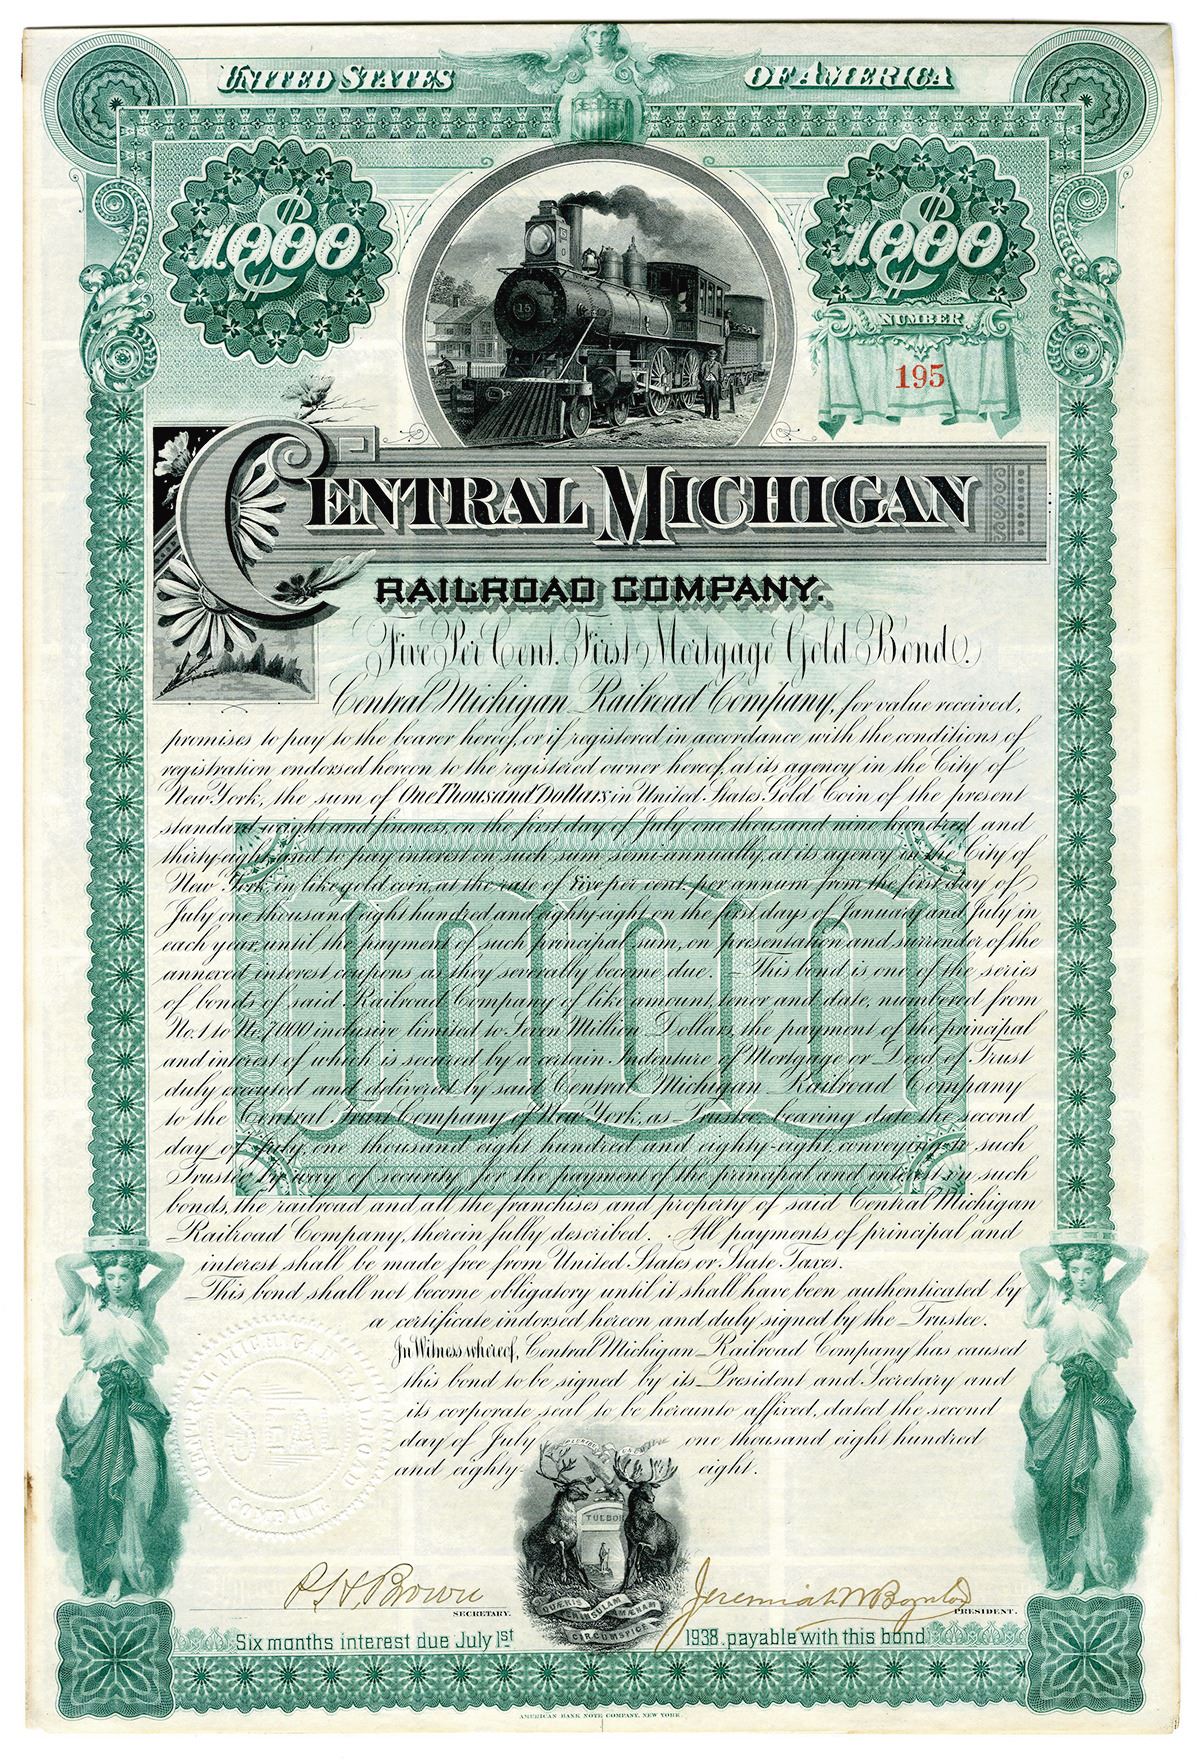 UNITED STATES OF AMERICA
$1000 $1000
NUMBER
195
15
CENTRAL MICHIGAN
RAILROAD COMPANY.
Five Per Cent. First Mortgage Gold Bond.
Central Michigan Railroad Company, for value received,
promises to pay to the bearer hereof, or if registered in accordance with the conditions of
registration endorsed hereon to the registered owner hereof, at its agency in the City of
New York, the sum of One Thousand Dollars in United States Gold Coin of the present
standard weight and fineness, on the first day of July one thousand nine hundred and
thirty-eight, and to pay interest on such sum semi-annually, at its agency in the City of
New York, in like gold coin, at the rate of Five per cent. per annum from the first day of
July one thousand eight hundred and eighty-eight, on the first days of January and July in
each year, until the payment of such principal sum, on presentation and surrender of the
annexed interest coupons as they severally become due. This bond is one of the series
of bonds of said Railroad Company of like amount, tenor and date, numbered from
No. 1 to No. 7,000 inclusive limited to Seven Million Dollars, the payment of the principal
and interest of which is secured by a certain Indenture of Mortgage or Deed of Trust
duly executed and delivered by said Central Michigan Railroad Company
to the Central Trust Company of New York, as Trustee, bearing date the second
day of July, one thousand eight hundred and eighty-eight, conveying to such
Trustee by way of security for the payment of the principal and interest on such
bonds, the railroad and all the franchises and property of said Central Michigan
Railroad Company, therein fully described. All payments of principal and
interest shall be made free from United States or State Taxes.
This bond shall not become obligatory until it shall have been authenticated by
a certificate indorsed hereon and duly signed by the Trustee.
In Witness whereof, Central Michigan Railroad Company has caused
this bond to be signed by its President and Secretary and
its corporate seal to be hereunto affixed, dated the second
day of July one thousand eight hundred
and eighty-eight.
CENTRAL MICHIGAN RAILROAD COMPANY
SEAL
TUEBOR
QUÆRIS PENINSULAM AMÆNAM
CIRCUMSPICE
P.H. Brown
SECRETARY.
Jeremiah W. Boynton
PRESIDENT.
Six months interest due July 1st 1938. payable with this bond
AMERICAN BANK NOTE COMPANY, NEW YORK.